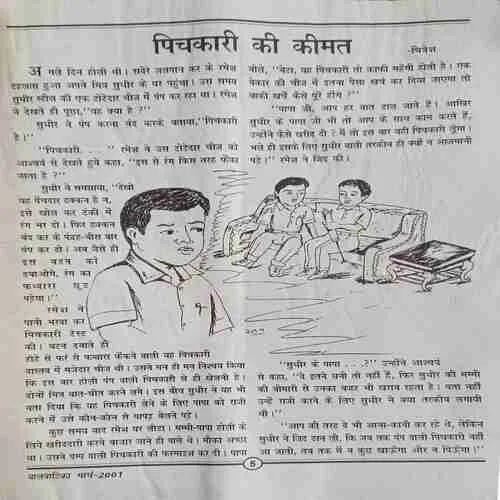 पिचकारी की कीमत
-चित्रेश
अगले दिन होली थी। सवेरे जलपान कर के रमेश
टहलता हुआ अपने मित्र सुधीर के घर पहुंचा। उस समय
सुधीर स्टील की एक टोंटेदार चीज में पंप कर रहा था। रमेश
ने देखते ही पूछा, "यह क्या है ?"
सुधीर ने पंप करना बंद करके बताया, "पिचकारी
है।"
"पिचकारी. . ." रमेश ने उस टोंटेदार चीज को
आश्चर्य से देखते हुये कहा, "इस से रंग किस तरह फेंका
जाता है ?"
सुधीर ने समझाया, "देखो
यह पेंचदार ढक्कन है न,
इसे खोल कर टंकी में
रंग भर दो। फिर ढक्कन
बंद कर के पंद्रह-बीस बार
पंप कर दो। अब जैसे ही
इस बटन को
दबाओगे, रंग का
फव्वारा छूट
पड़ेगा।"
रमेश ने
पानी भरवा कर
पिचकारी टेस्ट
की। बटन दबाते ही
होंटे से फर्र से फव्वारा फेंकने वाली यह पिचकारी
वास्तव में मजेदार चीज थी। उसने मन ही मन निश्चय किया
कि इस बार होली पंप वाली पिचकारी से ही खेलनी है।
दोनों मित्र बात-चीत करने लगे। इस बीच सुधीर ने यह भी
बता दिया कि यह पिचकारी लेने के लिए पापा को राजी
करने में उसे कौन-कौन से पापड़ बेलने पड़े।
कुछ समय बाद रमेश घर लौटा। मम्मी-पापा होली के
लिये खरीददारी करने बाजार जाने ही वाले थे। मौका अच्छा
था। उसने पम्प वाली पिचकारी की फरमाइश कर दी। पापा
बोले, "बेटा, वह पिचकारी तो काफी महँगी होती है। एक
बेकार की चीज में इतना पैसा खर्च कर दिया जाएगा तो
बाकी खर्चे कैसे पूरे होंगे ?"
"पापा जी, आप हर बात टाल जाते हैं। आखिर
सुधीर के पापा जी भी तो आप के साथ काम करते हैं,
उन्होंने कैसे खरीद दी ? मैं तो इस बार वही पिचकारी लूँगा।
भले ही इसके लिए सुधीर वाली तरकीब ही क्यों न आजमानी
पड़े।" रमेश ने जिद की।
"सुधीर के पापा . . .?" उन्होंने आश्चर्य
से कहा, "वे इतने धनी तो नहीं हैं, फिर सुधीर की मम्मी
की बीमारी से उनका बजट भी खराब रहता है। पता नहीं
उन्हें राजी करने के लिए सुधीर ने क्या तरकीब लगायी
थी।"
"आप की तरह वे भी आना-कानी कर रहे थे, लेकिन
सुधीर ने जिद ठान ली, कि जब तक पंप वाली पिचकारी नहीं
आ जाती, तब तक मैं न कुछ खाऊँगा और न पिऊँगा।"
बालवाटिका मार्च-2001